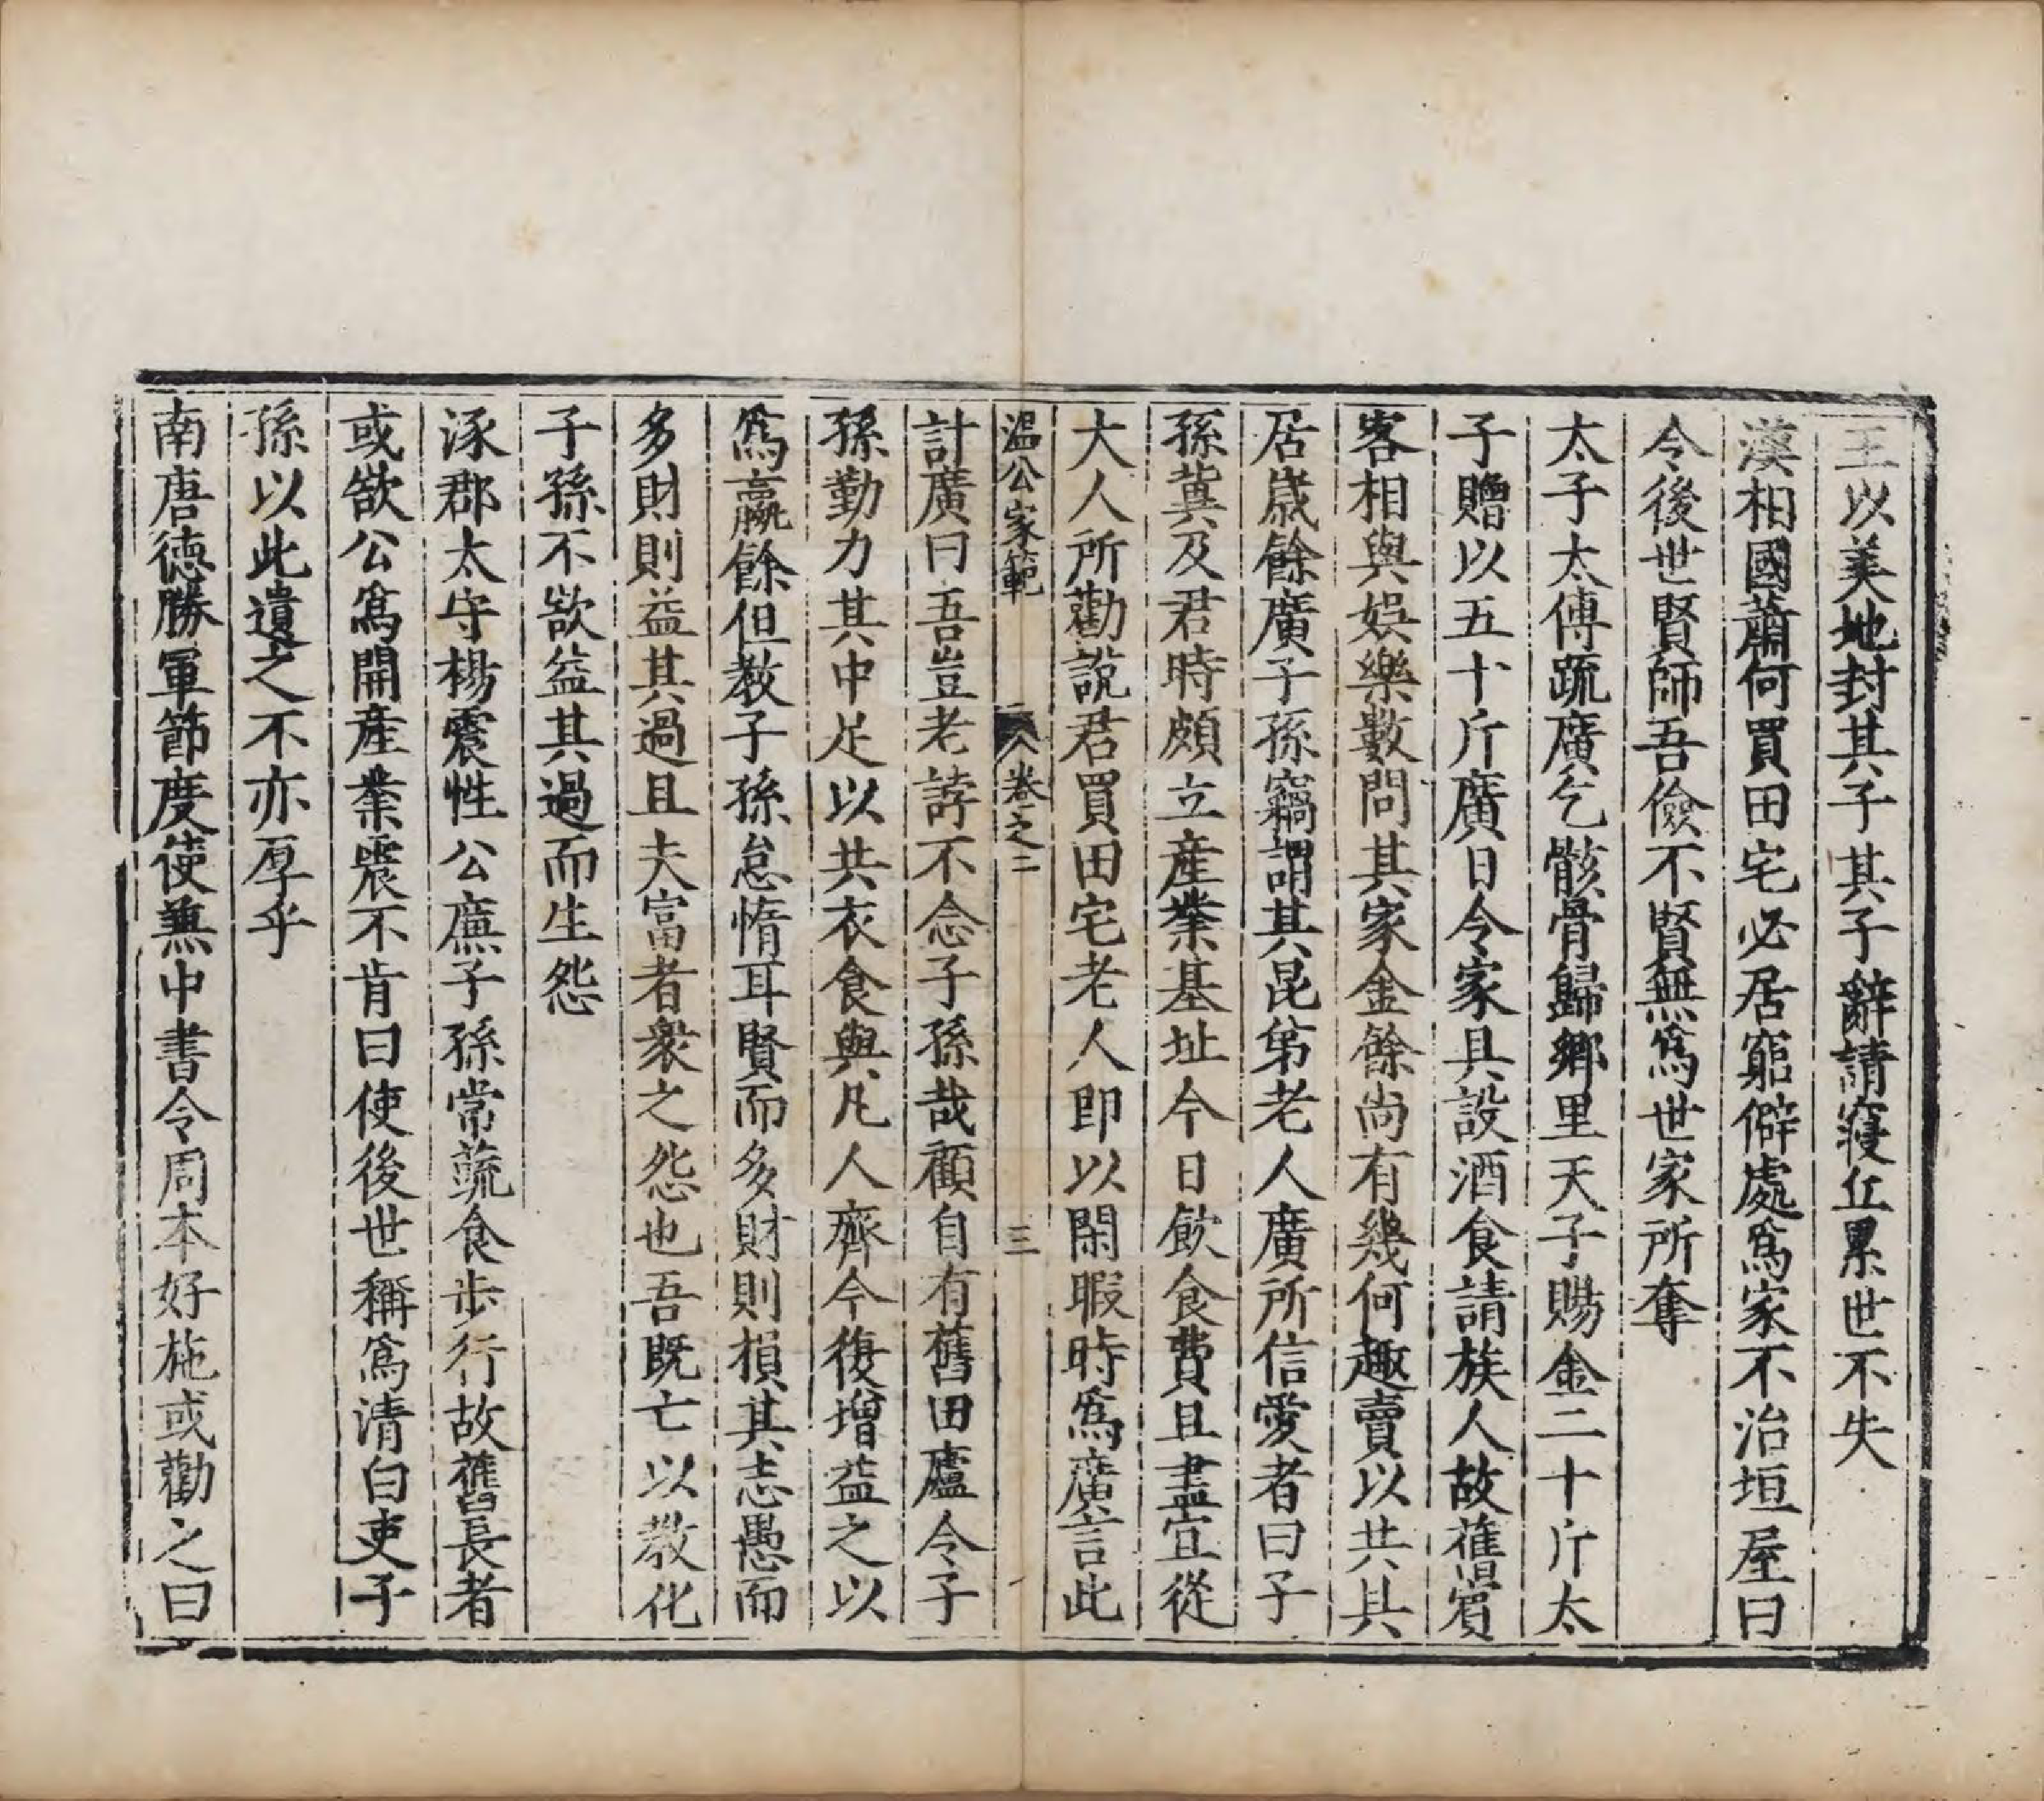 王以美地封其子其子辭請寑丘累世不失
漢相國蕭何買田宅必居窮僻處爲家不治垣屋曰
令後世賢師吾儉不賢無爲世家所奪
太子太傅疏廣乞骸骨歸鄉里天子賜金二十斤太
子贈以五十斤廣日令家具設酒食請族人故舊賓
客相與娛樂數問其家金餘尚有幾何趣賣以共具
居歲餘廣子孫竊謂其昆弟老人廣所信愛者曰子
孫兾及君時頗立產業基址今日飲食費且盡宜從
大人所勸說君買田宅老人即以閑暇時爲廣言此
温公家範 卷之二 三
計廣曰吾豈老誖不念子孫哉顧自有舊田廬令子
孫勤力其中足以共衣食與凡人齊今復增益之以
爲贏餘但教子孫怠惰耳賢而多財則損其志愚而
多財則益其過且夫富者衆之怨也吾既亡以教化
子孫不欲益其過而生怨
涿郡太守楊震性公廉子孫常蔬食步行故舊長者
或欲公爲開產業震不肯曰使後世稱爲清白吏子
孫以此遺之不亦厚乎
南唐德勝軍節度使兼中書令周本好施或勸之曰